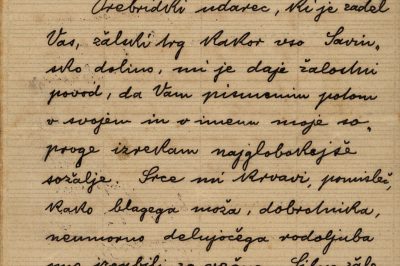 Prebridki udarec, ki je zadel
Vas, žalski trg kakor vso Savin„
sko dolino, mi je daje žalostni
povod, da Vam pismenim potom
v svojem in v imenu moje so„
proge izrekam najglobokejše
sožalje. Srce mi krvavi, pomisleč,
kako blagega moža, dobrotnika,
neumorno delujočega rodoljuba
smo izgubili za